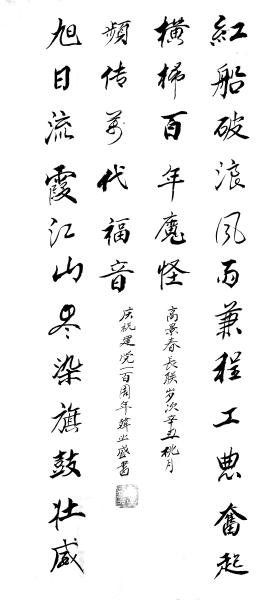 紅船破浪风雨兼程工農奮起
橫掃百年魔怪
高景春長联岁次辛丑桃月
頻传萬代福音
庆祝建党一百周年韓盛書
旭日流霞江山尽染旗鼓壮威